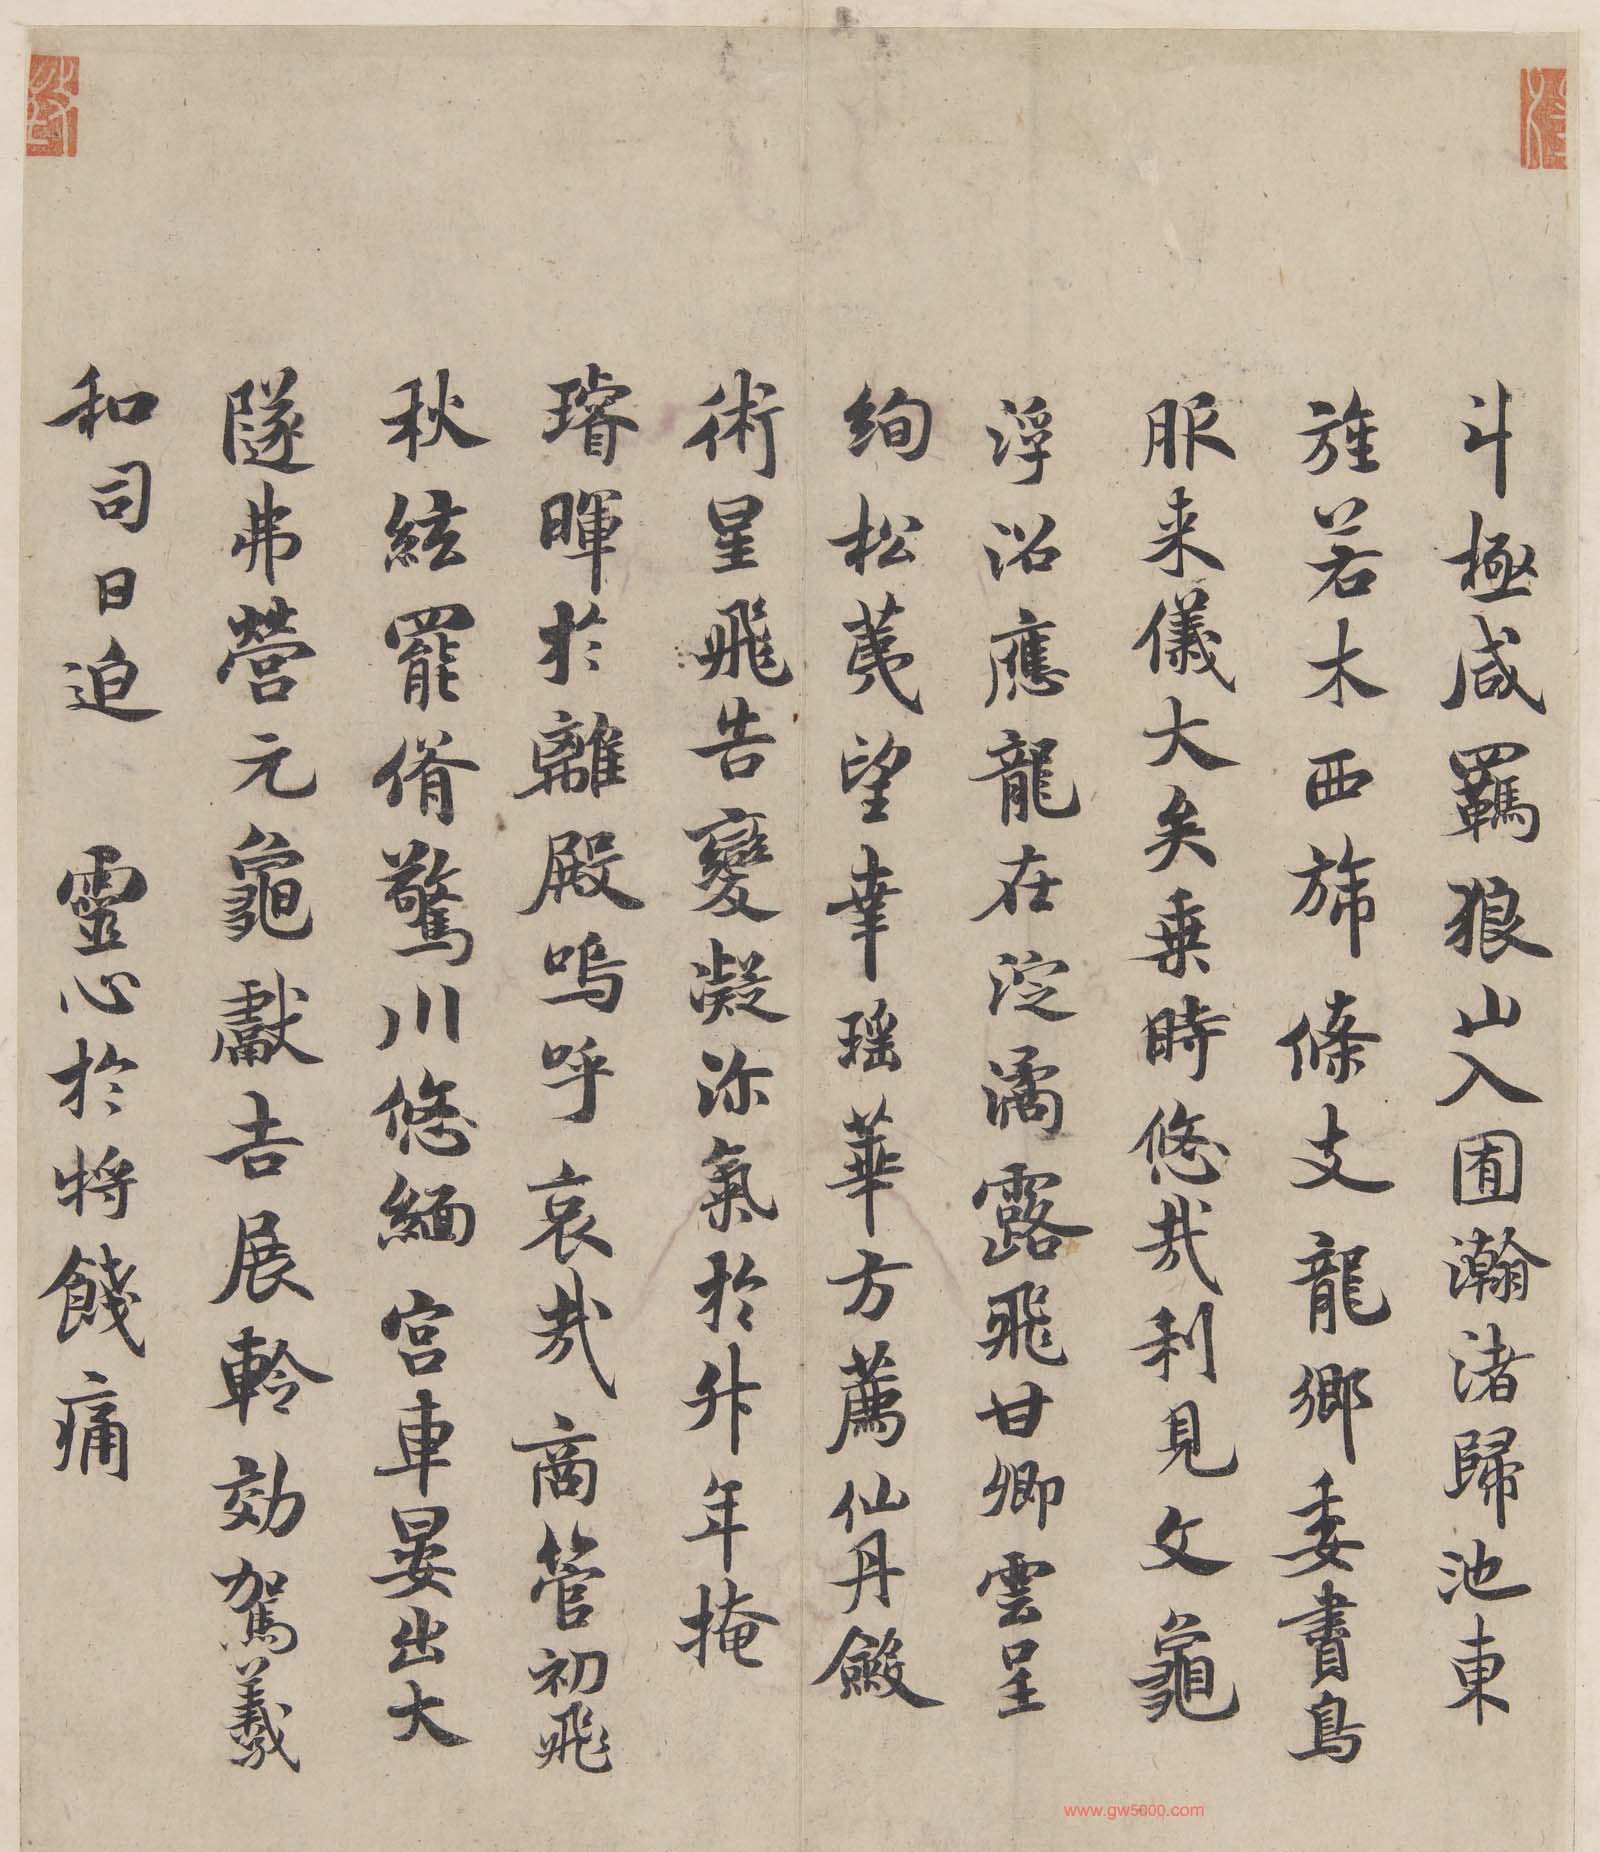 斗極咸羈狼山入囿瀚渚歸池東
旌若木西旆條支龍鄉委書鳥
服来儀大矣乗時悠哉利見文龜
浮沼應龍在淀潏露飛甘卿雲呈
絢松荑望幸瑶華方薦仙丹斂
術星飛告變凝沴氣於升年掩
璿暉於離殿嗚呼哀哉商管初飛
秋絃罷脩驚川悠緬宮車晏出大
隧弗營元龜獻吉展軨効駕羲
和司日迫靈心於將餞痛
www.gw5000.com